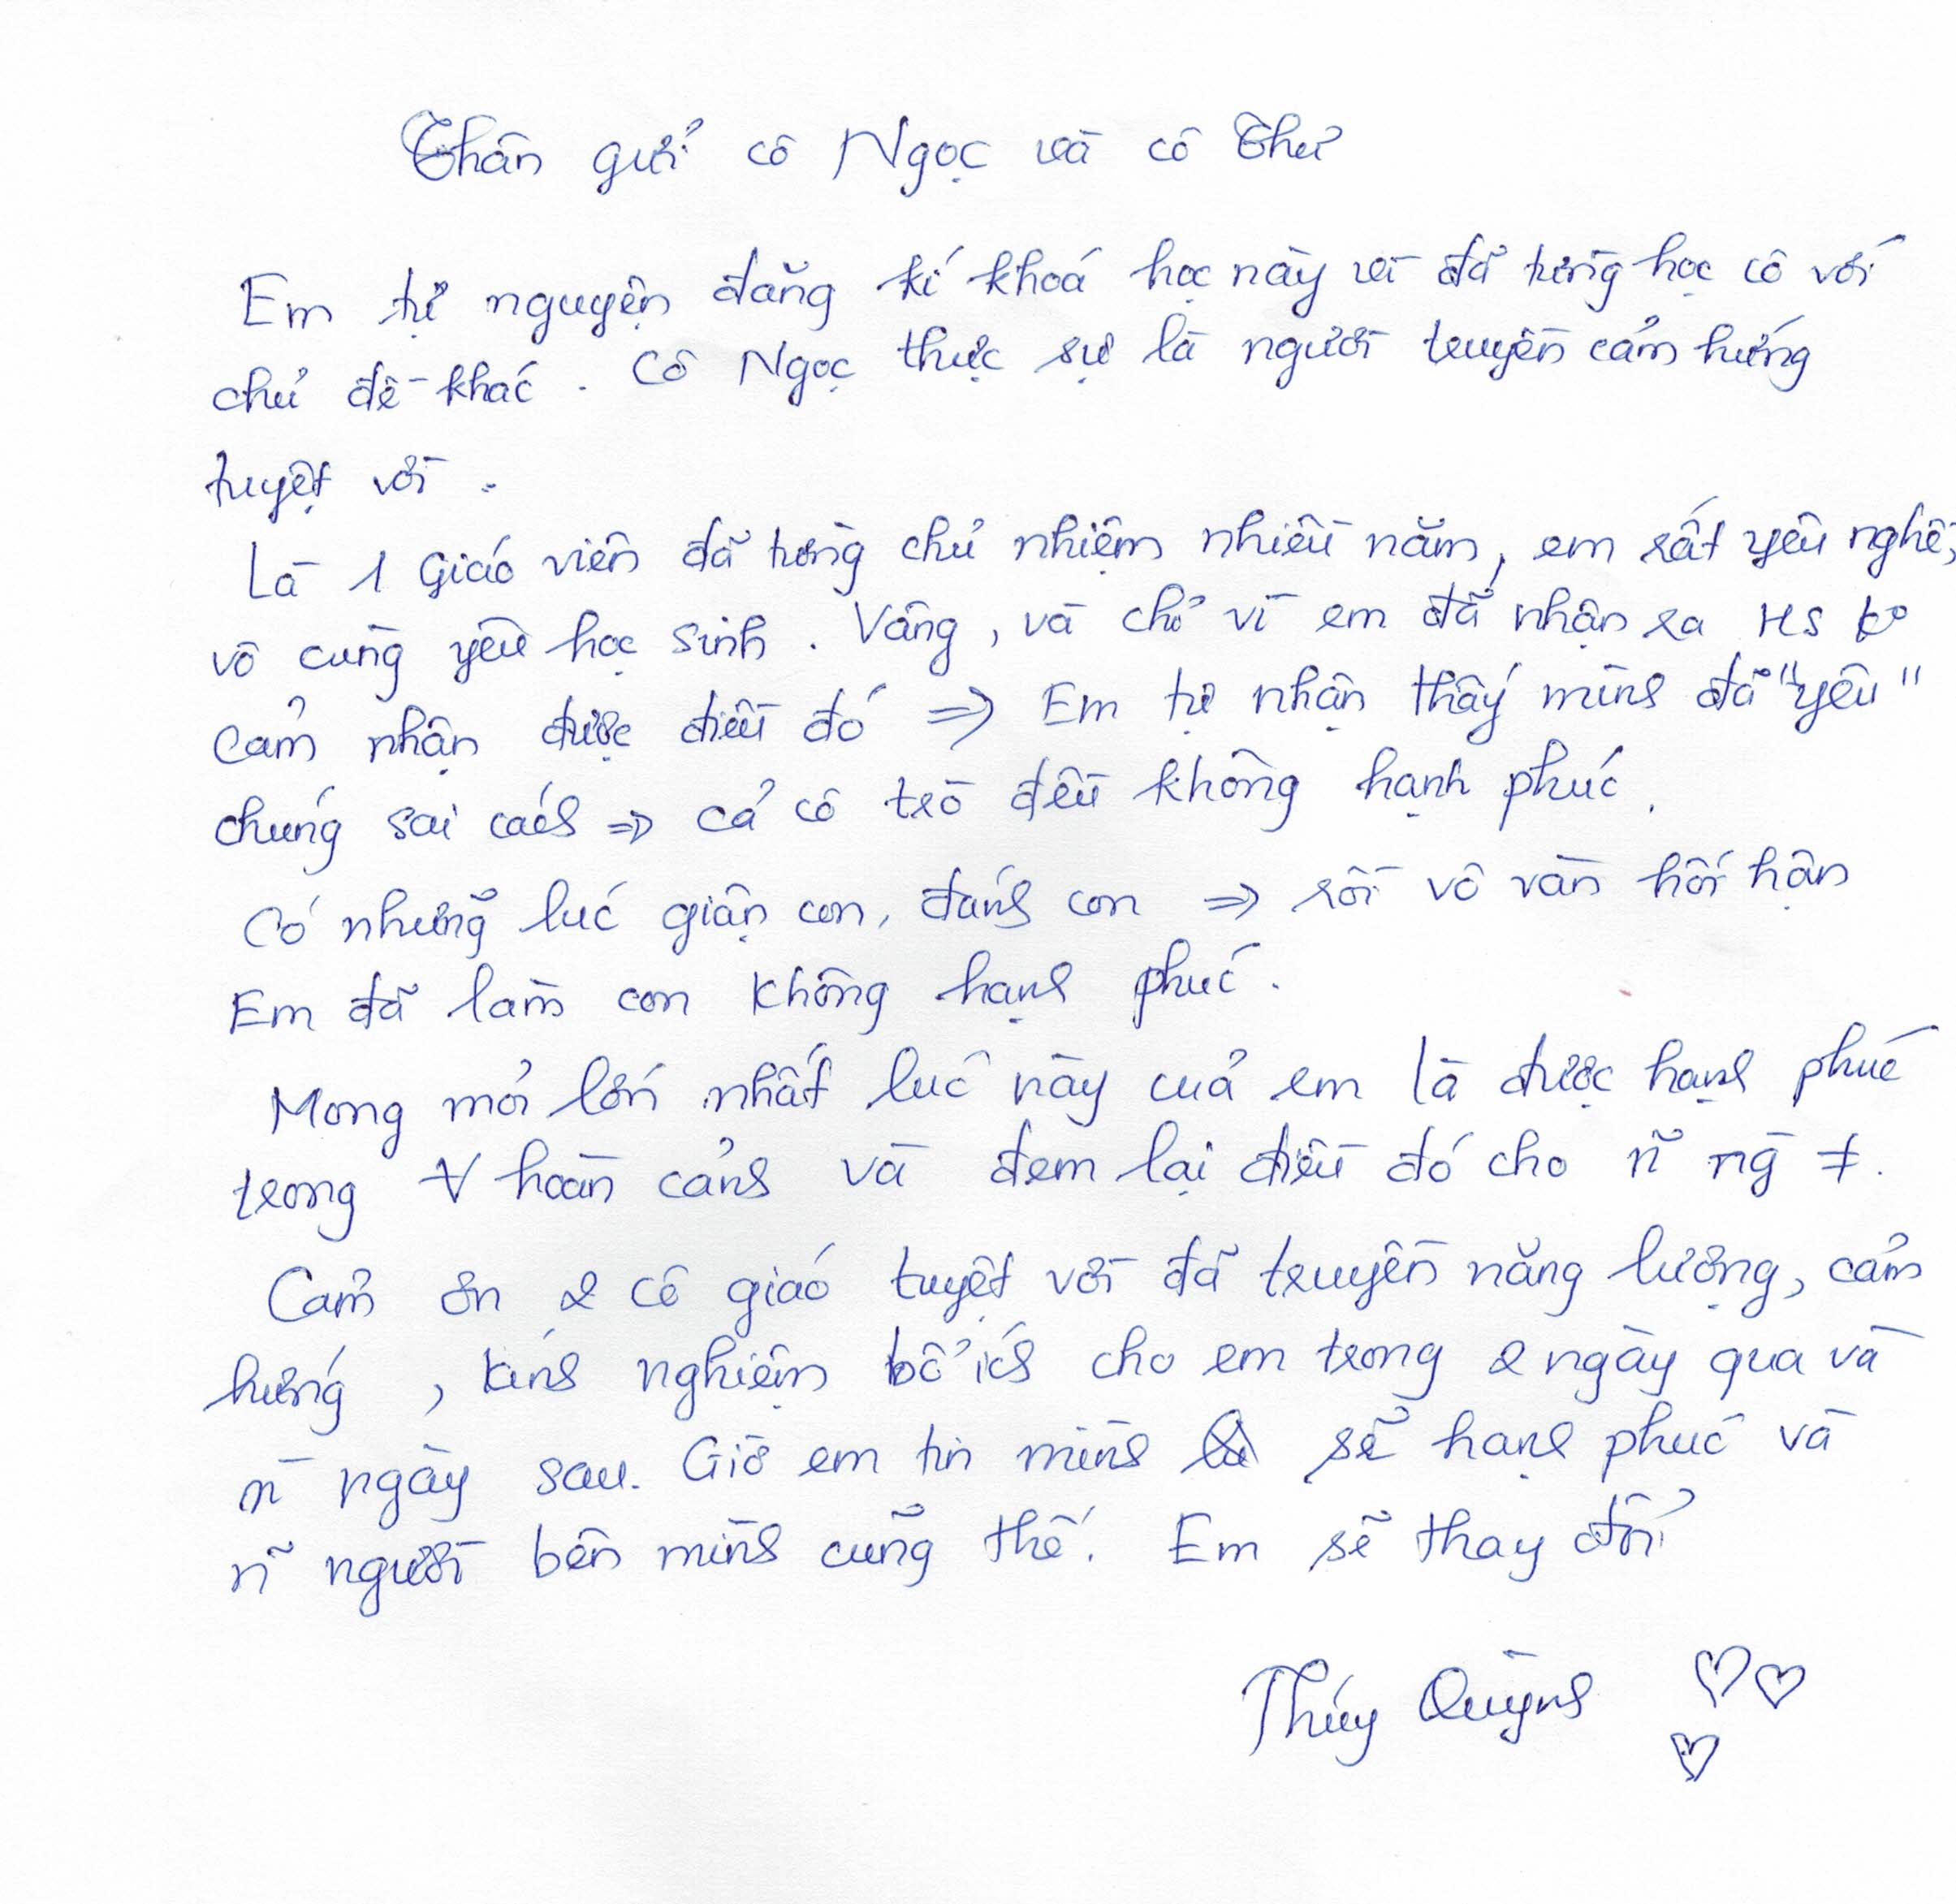 Thân gửi cô Ngọc và cô Thư
Em tự nguyện đăng kí khoá học này vì đã từng học cô với
chủ đề khác. Cô Ngọc thực sự là người truyền cảm hứng
tuyệt vời.
Là 1 Giáo viên đã từng chủ nhiệm nhiều năm, em rất yêu nghề,
vô cùng yêu học sinh. Vâng, và chỉ vì em đã nhận ra HS ko
cảm nhận được điều đó => Em tự nhận thấy mình đã "yêu"
chúng sai cách => cả cô trò đều không hạnh phúc.
Có những lúc giận con, đánh con => rồi vô vàn hối hận
Em đã làm con không hạnh phúc.
Mong mỏi lớn nhất lúc này của em là được hạnh phúc
trong ∀ hoàn cảnh và đem lại điều đó cho ñ ng̀ ≠.
Cảm ơn 2 cô giáo tuyệt vời đã truyền năng lượng, cảm
hứng, kinh nghiệm bổ ích cho em trong 2 ngày qua và
ñ ngày sau. Giờ em tin mình sẽ hạnh phúc và
ñ người bên mình cũng thế. Em sẽ thay đổi
Thúy Quỳnh ♡♡
♡